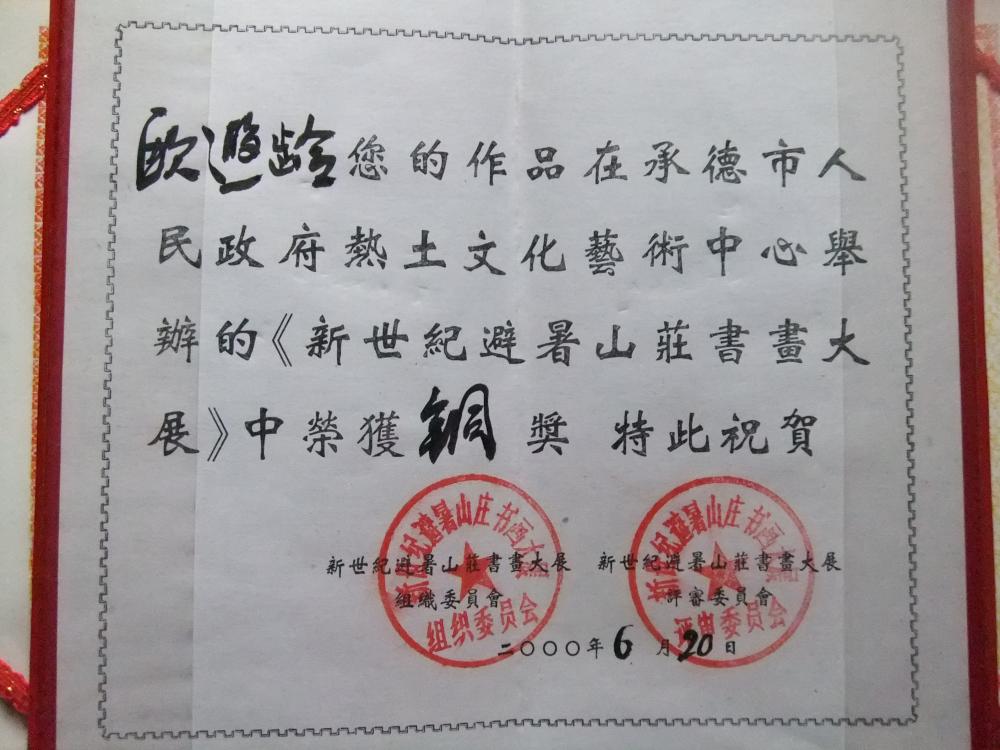 欧遐龄您的作品在承德市人
民政府熱土文化藝術中心舉
辦的《新世紀避暑山莊書畫大
展》中榮獲銅獎 特此祝賀
新世紀避暑山莊書畫大展
組織委員會
新世紀避暑山莊書畫大展
評審委員會
二〇〇〇年6月20日
新世纪避暑山庄书画大展
组织委员会
新世纪避暑山庄书画大展
评审委员会